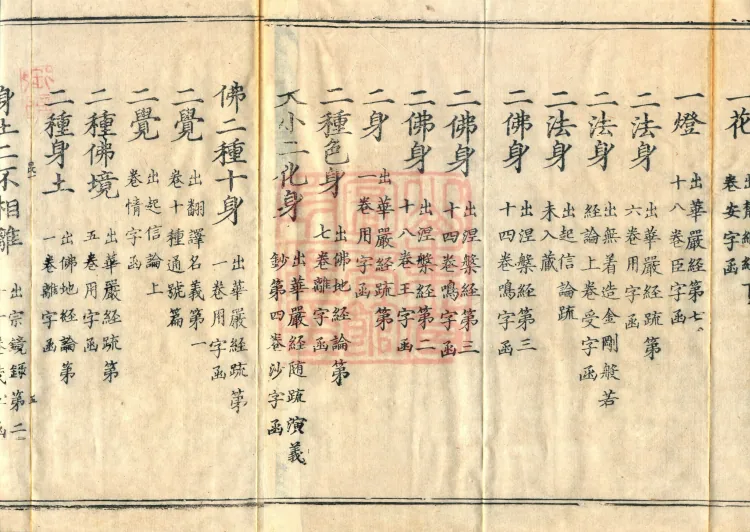 一花
卷安字函
一燈 出華嚴經第七
十八卷臣字函
二法身 出華嚴經疏第
六卷用字函
二法身 出無着造金剛般若
經論上卷受字函
二法身 出起信論疏
未入藏
二佛身 出涅槃經第三
十四卷鳴字函
二佛身 出涅槃經第三
十四卷鳴字函
二佛身 出涅槃經第二
十八卷王字函
二身 出華嚴經疏第
一卷用字函
二種色身 出佛地經論第
七卷離字函
大小二化身 出華嚴經随疏演義
鈔第四卷沙字函
佛二種十身 出華嚴經疏第
一卷用字函
二覺 出翻譯名義第一
卷十種通號篇
二覺 出起信論上
卷情字函
二種佛境 出華嚴經疏第
五卷用字函
二種身土 出佛地經論第
一卷離字函
身土二不相離 出宗鏡錄第二